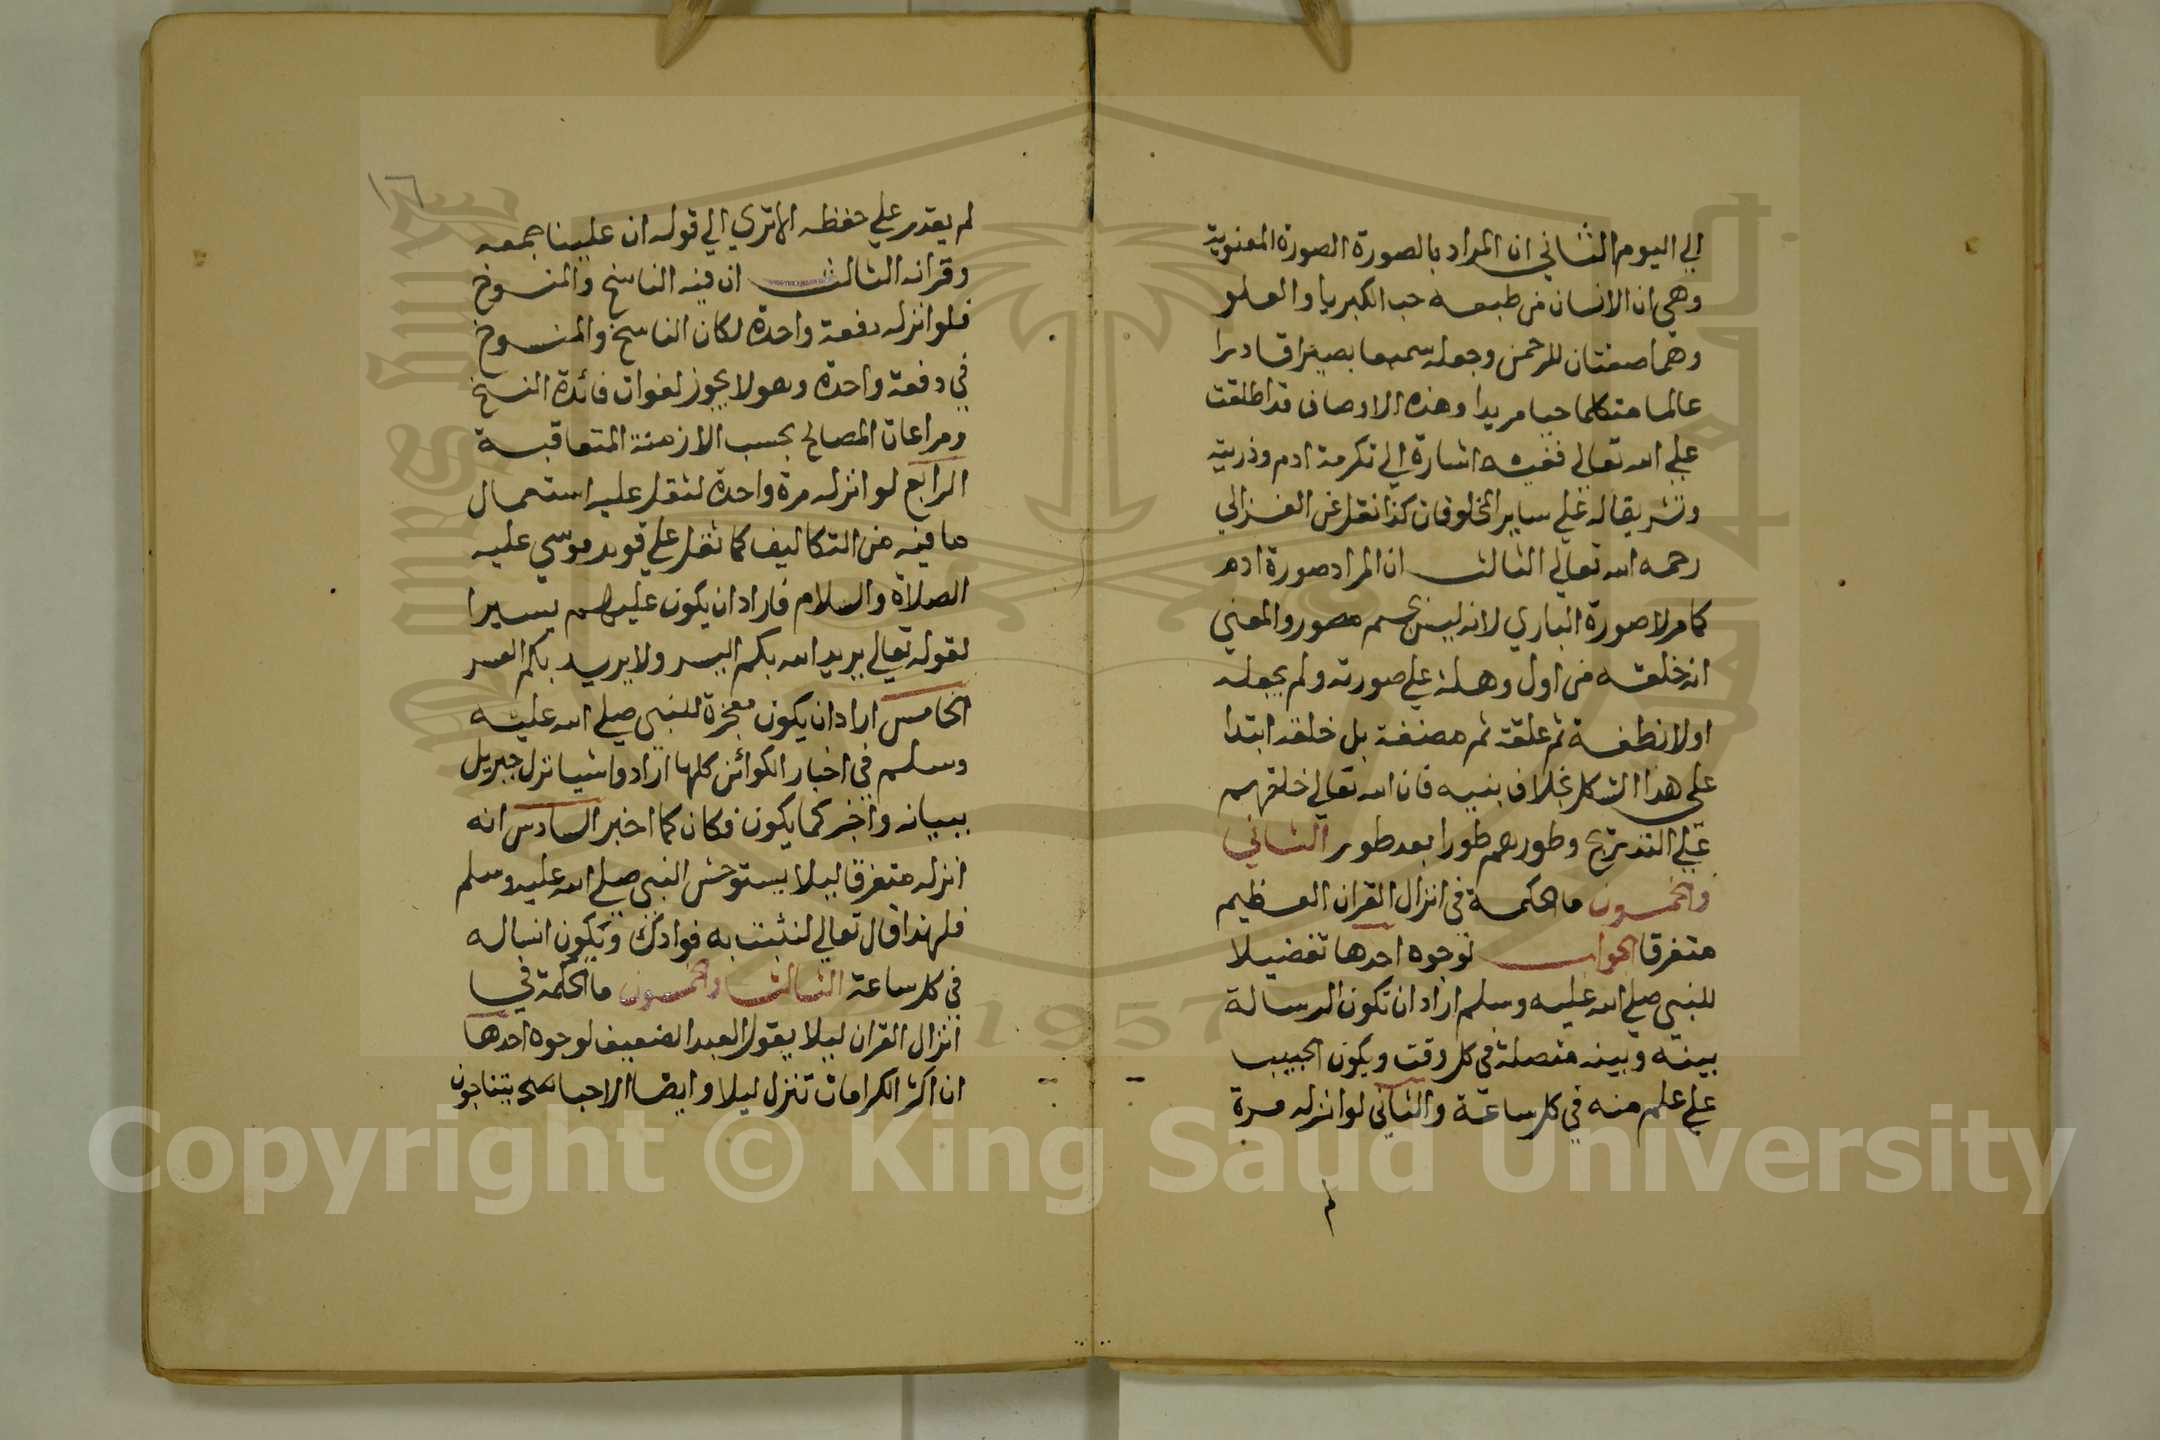 الي اليوم الثاني ان المراد بالصورة الصورة المعنوية
وهي ان الانسان من طبعه حب الكبريا والعلو
وهما صفتان للرحمن وجعله سميعا بصيرا قادرا
عالما متكلما حيا مريدا وهذه الاوصاف قد اطلقت
علي الله تعالي ففيه اشارة الي تكرمة ادم وذريته
وتشريفا له علي ساير المخلوقات كذا نقل عن الغزالي
رحمه الله تعالي الثالث ان المراد صورة ادم
كما مر لا صورة الباري لانه ليس بجسم مصور والمعني
انه خلقه من اول وهلة علي صورته ولم يجعله
اولا نطفة ثم علقة ثم مضغة بل خلقه ابتدا
علي هذا الشكل بخلاف بنيه فان الله تعالي خلقهم
علي التدريج وطورهم طورا بعد طور الثاني
والخمسون ما الحكمة في انزال القران العظيم
متفرقا الجواب لوجوه احدها تفضيلا
للنبي صلي الله عليه وسلم اراد ان تكون الرسالة
بينه وبينه متصلة في كل وقت ويكون الحبيب
علي علم منه في كل ساعة والثاني لو انزله مرة
لم
١٦
لم يقدر علي حفظه الا تري الي قوله ان علينا جمعه
وقرانه الثالث ان فيه الناسخ والمنسوخ
فلو انزله دفعة واحدة لكان الناسخ والمنسوخ
في دفعة واحدة وهو لا يجوز لفوات فائدة النسخ
ومراعات المصالح بحسب الازمنة المتعاقبة
الرابع لو انزله مرة واحدة لثقل عليه استعمال
ما فيه من التكاليف كما ثقل علي قوم موسي عليه
الصلاة والسلام فاراد ان يكون عليهم يسيرا
لقوله تعالي يريد الله بكم اليسر ولا يريد بكم العسر
الخامس اراد ان يكون معجزة للنبي صلي الله عليه
وسلم في اخبار الكوائن كلها ارادوا شيا نزل جبريل
ببيانه واخبر كما يكون فكان كما اخبر السادس انه
انزله متفرقا ليلا يستوحش النبي صلي الله عليه وسلم
فلهذا قال تعالي لنثبت به فوادك ويكون انسا له
في كل ساعة الثالث والخمسون ما الحكمة في
انزال القران ليلا يقول العبد الضعيف لوجوه احدها
ان اكثر الكرامات تنزل ليلا وايضا الاحبا يتناجون
Copyright © King Saud University
1957